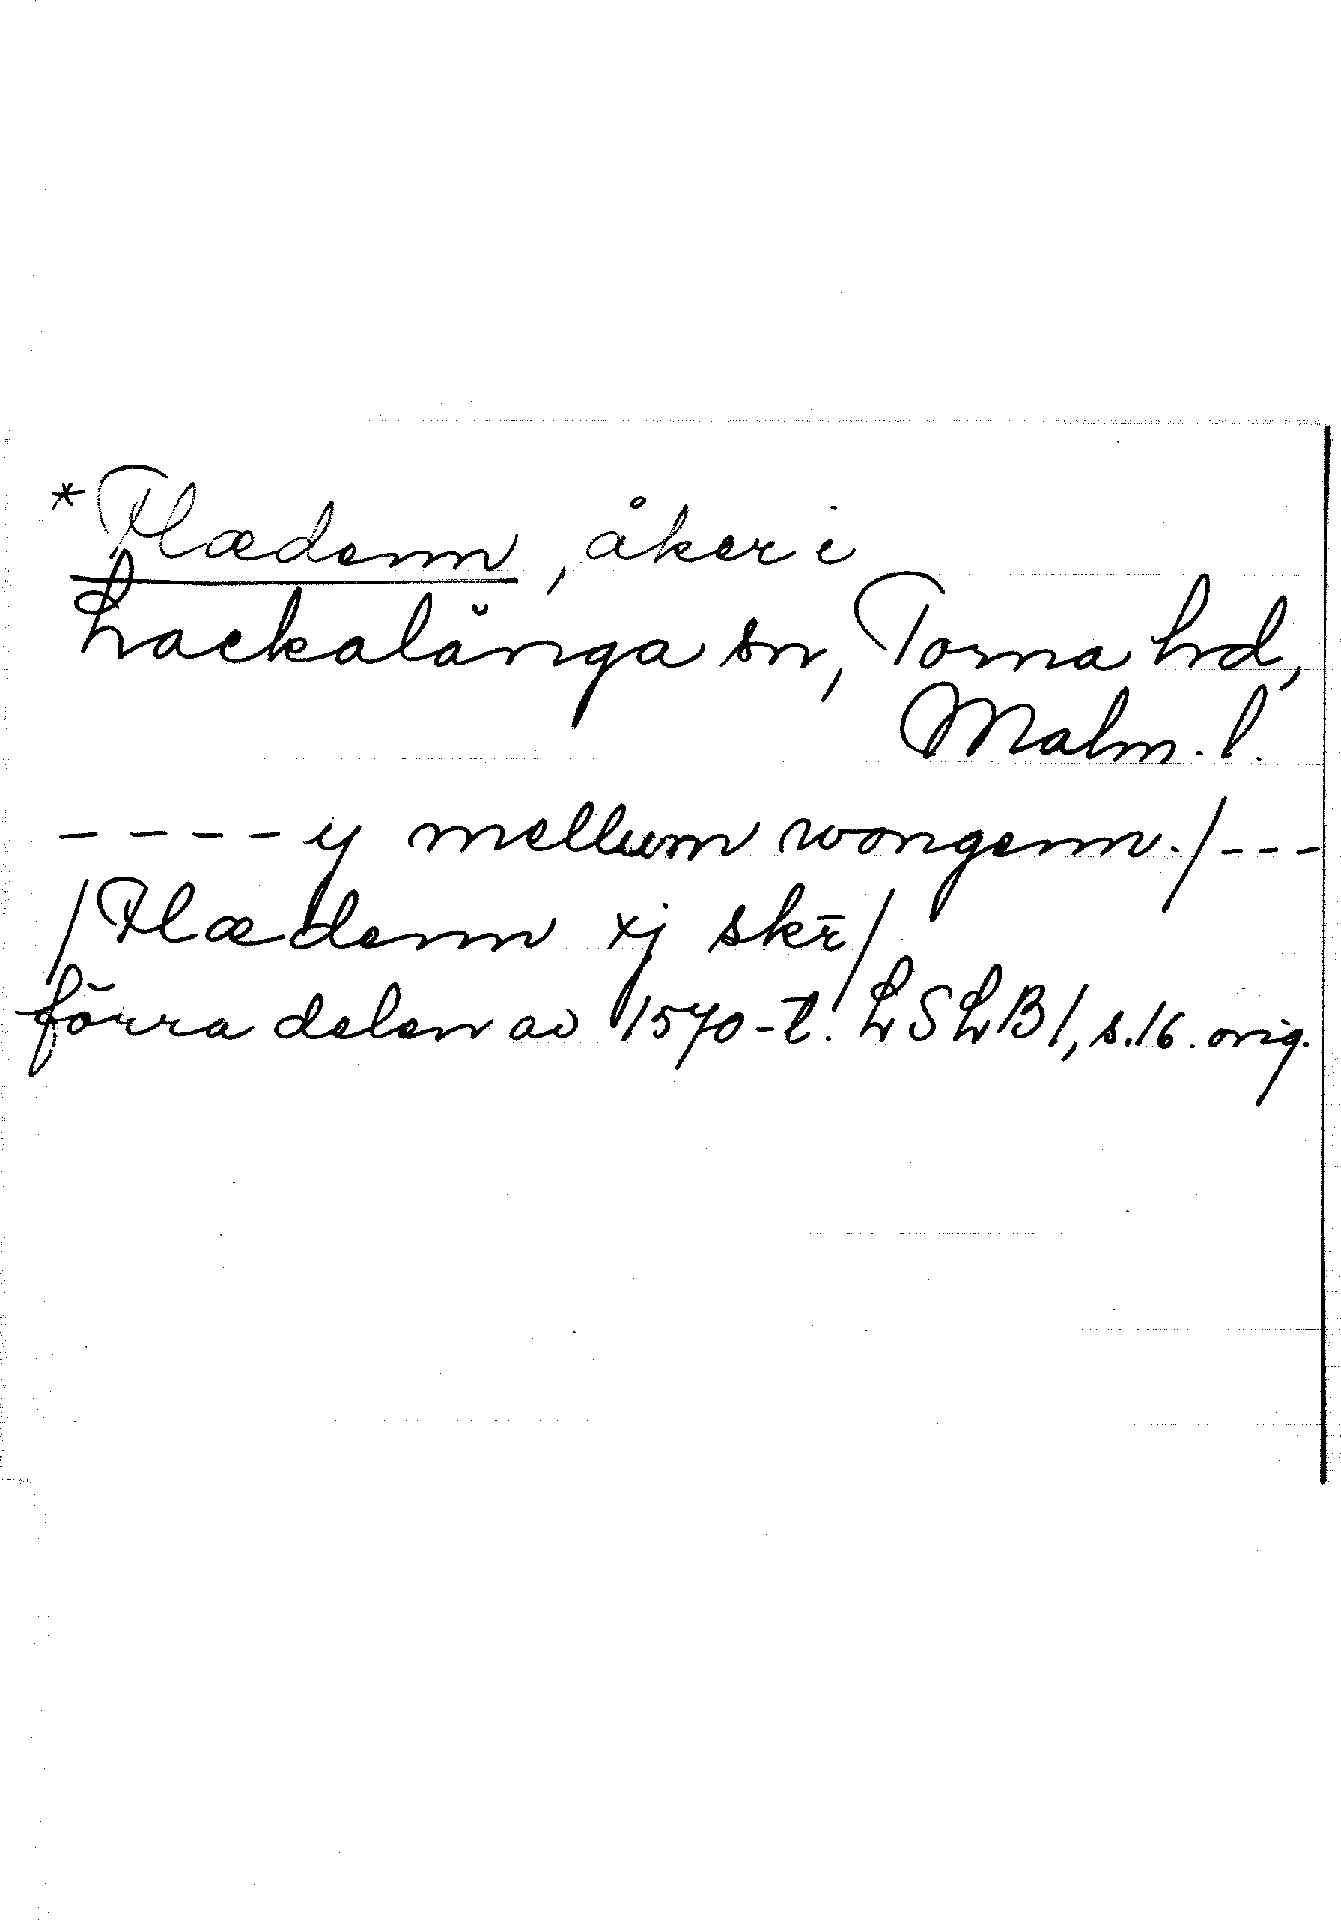 *Flædenn, åker i
Lackalänga sn, Torna hd,
Malm. l.
---- y mellum wongenn./---
/Flædenn xj skr̄/
förra delen av 1570-t. LSLB 1, s. 16. orig.